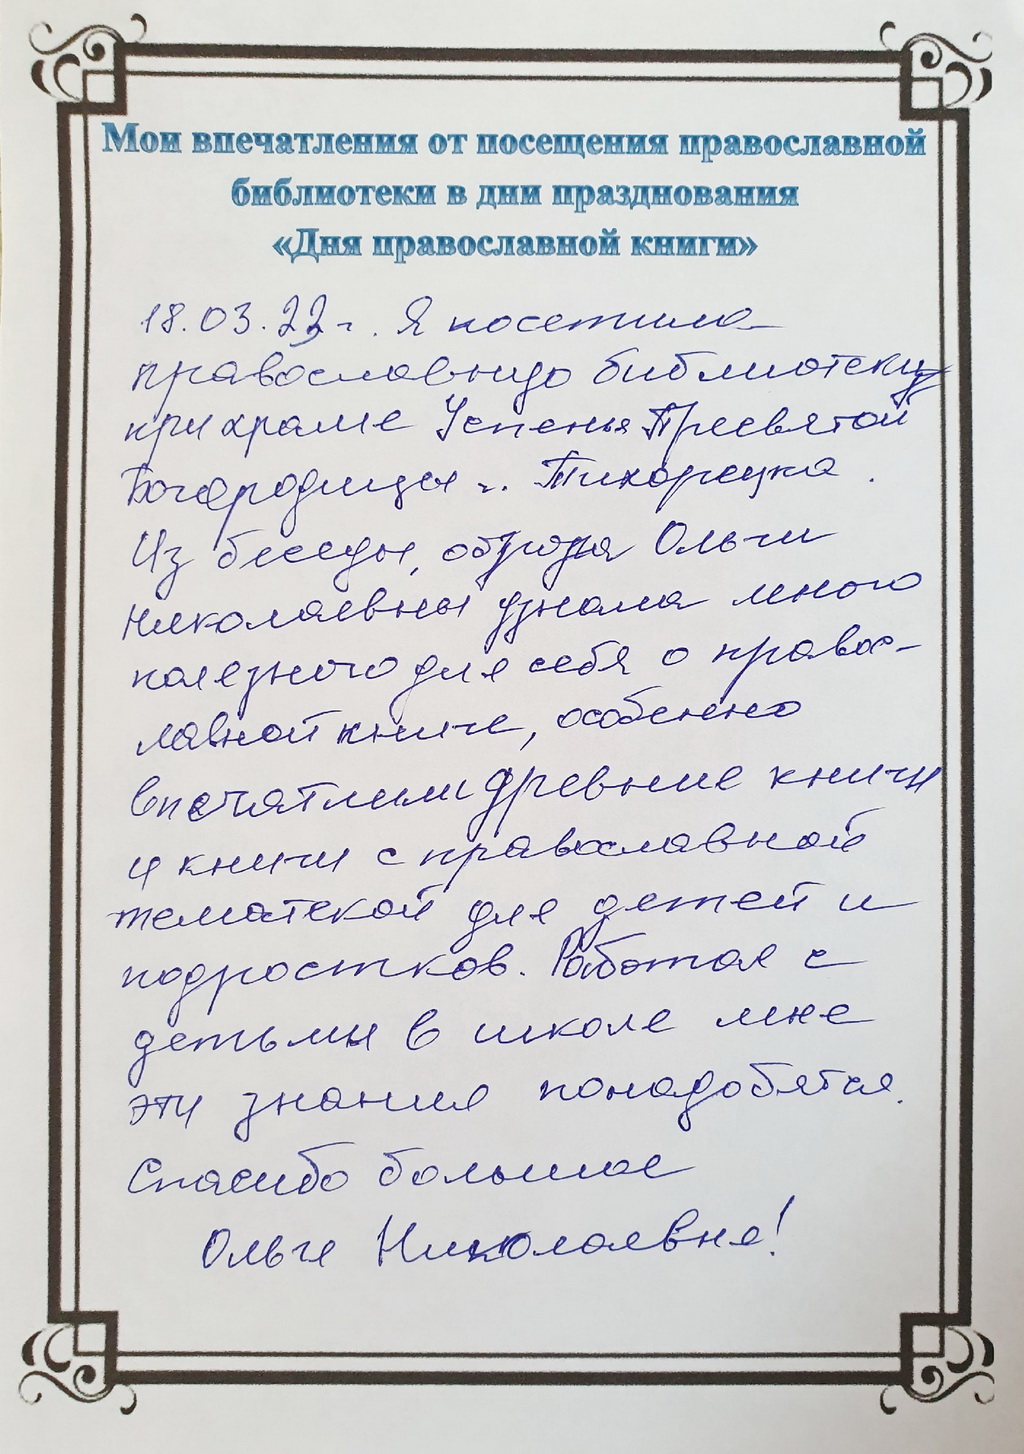 Мои впечатления от посещения православной
библиотеки в дни празднования
«Дня православной книги»
18.03.23 г. Я посетила
православную библиотеку
при храме Успенья Пресвятой
Богородицы г. Тихорецка.
Из беседы, обзора Ольги
Николаевны узнала много
полезного для себя о правос-
лавной книге, особенно
впечатлили древние книги
и книги с православной
тематекой для детей и
подростков. Работая с
детьми в школе мне
эти знания понадобятся.
Спасибо большое
Ольге Николаевне!